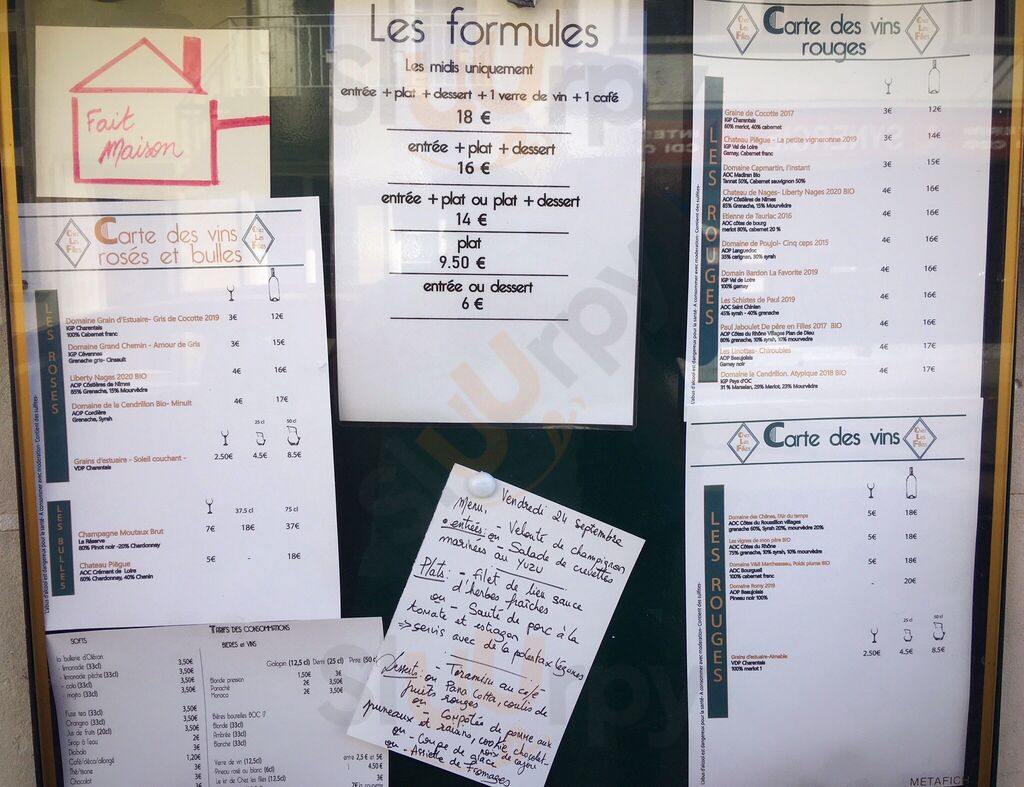 Fait
Maison
Les formules
Les midis uniquement
entrée + plat + dessert + 1 verre de vin + 1 café
18 €
entrée + plat + dessert
16 €
entrée + plat ou plat + dessert
14 €
plat
9.50 €
entrée ou dessert
6 €
Chez Les Filles
Carte des vins
rosés et bulles
LES ROSES
Domaine Grain d'Estuaire- Gris de Cocotte 2019 3€ 12€
IGP Charentais
100% Cabernet franc
Domaine Grand Chemin - Amour de Gris 3€ 15€
IGP Cévennes
Grenache gris- Cinsault
Liberty Nages 2020 BIO 4€ 16€
AOP Côstières de Nîmes
85% Grenache, 15% Mourvèdre
Domaine de la Cendrillon Bio- Minuit 4€ 17€
AOP Corbière
Grenache, Syrah
25 cl 50 cl
Grains d'estuaire - Soleil couchant - 2.50€ 4.5€ 8.5€
VDP Charentais
LES BULLES
37.5 cl 75 cl
Champagne Moutaux Brut 7€ 18€ 37€
La Réserve
80% Pinot noir -20% Chardonnay
Chateau Piègue 5€ - 18€
AOC Crémant de Loire
60% Chardonnay, 40% Chenin
L'abus d'alcool est dangereux pour la santé- A consommer avec moderation- Contient des sulfites-
Chez Les Filles
Carte des vins
rouges
LES ROUGES
Graine de Cocotte 2017 3€ 12€
IGP Charentais
60% merlot, 40% cabernet
Chateau Piègue - La petite vigneronne 2019 3€ 14€
IGP Val de Loire
Gamay, Cabernet franc
Domaine Capmartin, l'instant 3€ 15€
AOC Madiran Bio
Tannat 50%, Cabernet sauvignon 50%
Chateau de Nages- Liberty Nages 2020 BIO 4€ 16€
AOP Côstières de Nîmes
85% Grenache, 15% Mourvèdre
Etienne de Tauriac 2016 4€ 16€
AOC côtes de bourg
merlot 80%, cabernet 20 %
Domaine de Poujol- Cinq ceps 2015 4€ 16€
AOP Languedoc
35% carignan, 30% syrah
Domain Bardon La Favorite 2019 4€ 16€
IGP Val de Loire
100% gamay
Les Schistes de Paul 2019 4€ 16€
AOC Saint Chinian
45% syrah - 40% grenache
Paul Jaboulet De père en Filles 2017 BIO 4€ 16€
AOP Côtes du Rhône Villages Plan de Dieu
80% grenache, 10% syrah, 10% mourvèdre
Les Linottes- Chiroubles 4€ 17€
AOP Beaujolais
Gamay noir
Domaine la Cendrillon. Atypique 2018 BIO 4€ 17€
IGP Pays d'OC
31 % Marselan, 29% Merlot, 23% Mourvèdre
L'abus d'alcool est dangereux pour la santé- A consommer avec moderation- Contient des sulfites-
Chez Les Filles
Carte des vins
LES ROUGES
Domaine des Chênes, l'Air du temps 5€ 18€
AOC Côtes du Roussillon villages
grenache 60%, Syrah 20%, mourvèdre 20%
Les vignes de mon père BIO 5€ 18€
AOC Côtes du Rhône
75% grenache, 10% syrah, 10% mourvèdre
Domaine V&B Marchesseau, Poids plume BIO 5€ 18€
AOC Bourgueil
100% cabernet franc
Domaine Romy 2019 - 20€
AOP Beaujolais
Pineau noir 100%
25 cl 50 cl
Grains d'estuaire-Aimable 2.50€ 4.5€ 8.5€
VDP Charentais
100% merlot 1
L'abus d'alcool est dangereux pour la santé- A consommer avec moderation- Contient des sulfites-
METAFICH
Vendredi 24 Septembre
Menu.
• entrées: - Velouté de champignon
ou - Salade de crevettes
marinées au Yuzu
Plats: - Filet de lieu sauce
d'herbes fraîches
ou - Sauté de porc à la
tomate et estragon
⇒ servis avec de la polenta x légumes
Desserts: - Tiramisu au café -
ou Pana Cotta, coulis de
fruits rouges
ou - Compotée de pomme aux
pruneaux et raisins, cookie chocolat-
noix de cajou
ou - Coupe de glace
ou - Assiette de fromages
Tarifs des consommations
SOFTS
la bullerie d'Oléron
- limonade (33cl) 3,50€
- limonade pêche (33cl) 3,50€
- cola (33cl) 3,50€
- mojito (33cl) 3,50€
Fuze tea (33cl) 3,50€
Orangina (33cl) 3,50€
Jus de fruits (20cl) 3,50€
Sirop à l'eau 2€
Diabolo 3€
Café/déca/allongé 1,20€
Thé/tisane 3€
Chocolat 3€
BIERES et VINS
Galopin (12,5 cl) Demi (25 cl) Pinte (50 c
Blonde pression 1,50€ 3€
Panaché 2€ 3,50€
Monaco 2€ 3,50€
Bières bouteilles BOC 17
Blonde (33cl)
Ambrée (33cl)
Blanche (33cl)
Verre de vin (12,5cl) entre 2,5 € et 5€
Pineau rosé ou blanc (6cl) 4,50€
Le kir de Chez les filles (12,5cl) 3€
slurrpy